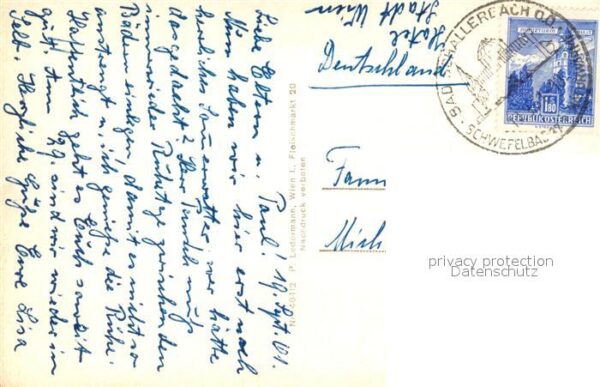 Liebe Eltern u. Paul! 19. Sept. 61.
Nun haben wir hier erst noch
herrliches Sonnenwetter, wer hätte
das gedacht? Der muß
immerwieder Ruhetage zwischen den
Bädern einlegen, damit es nicht so
anstrengt u. ich genieße die Ruhe.
Hoffentlich geht es Euch soweit
gut! Am sind wir wieder in
Herzliche Grüße Eure Lisa
P. Ledermann, Wien I., Fleischmarkt 20
Nachdruck verboten
Hotel
Stadt Wien
Deutschland
Fam
Mich
BAD SCHALLERBACH O.Ö.
SCHWEFELBAD
1.80
REPUBLIK ÖSTERREICH
privacy protection
Datenschutz